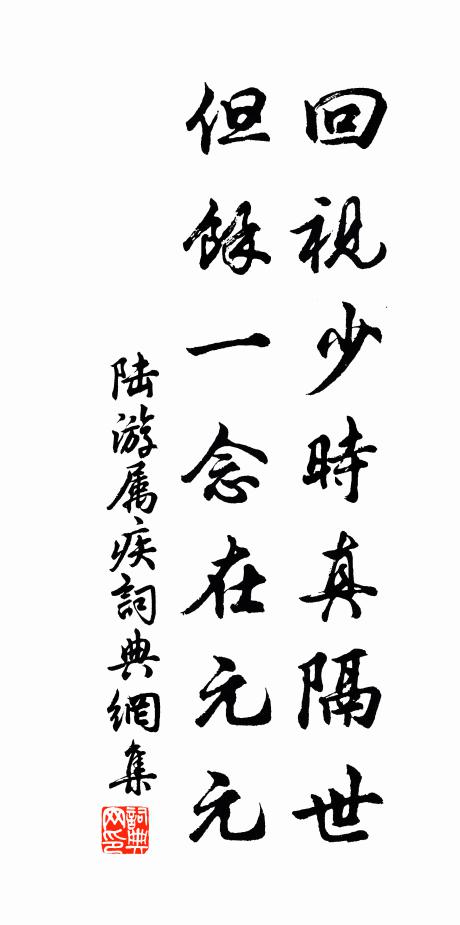 回視少時真隔世
但餘一念在元元
陆游属疾詞典網集
詞典網印